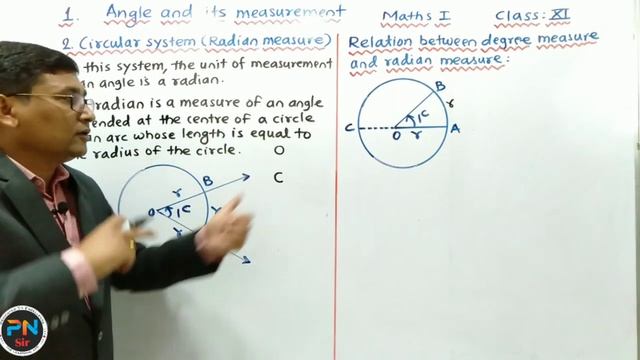 1. Angle and its measurement Maths I Class: XI
2. Circular system (Radian measure)
this system, the unit of measurement
an angle is a radian.
radian is a measure of an angle
ended at the centre of a circle
an arc whose length is equal to
radius of the circle. O
C
B
r
O
1c
r
r
Relation between degree measure
and radian measure:
B
r
1c
C
O
r
A
PN
Sir